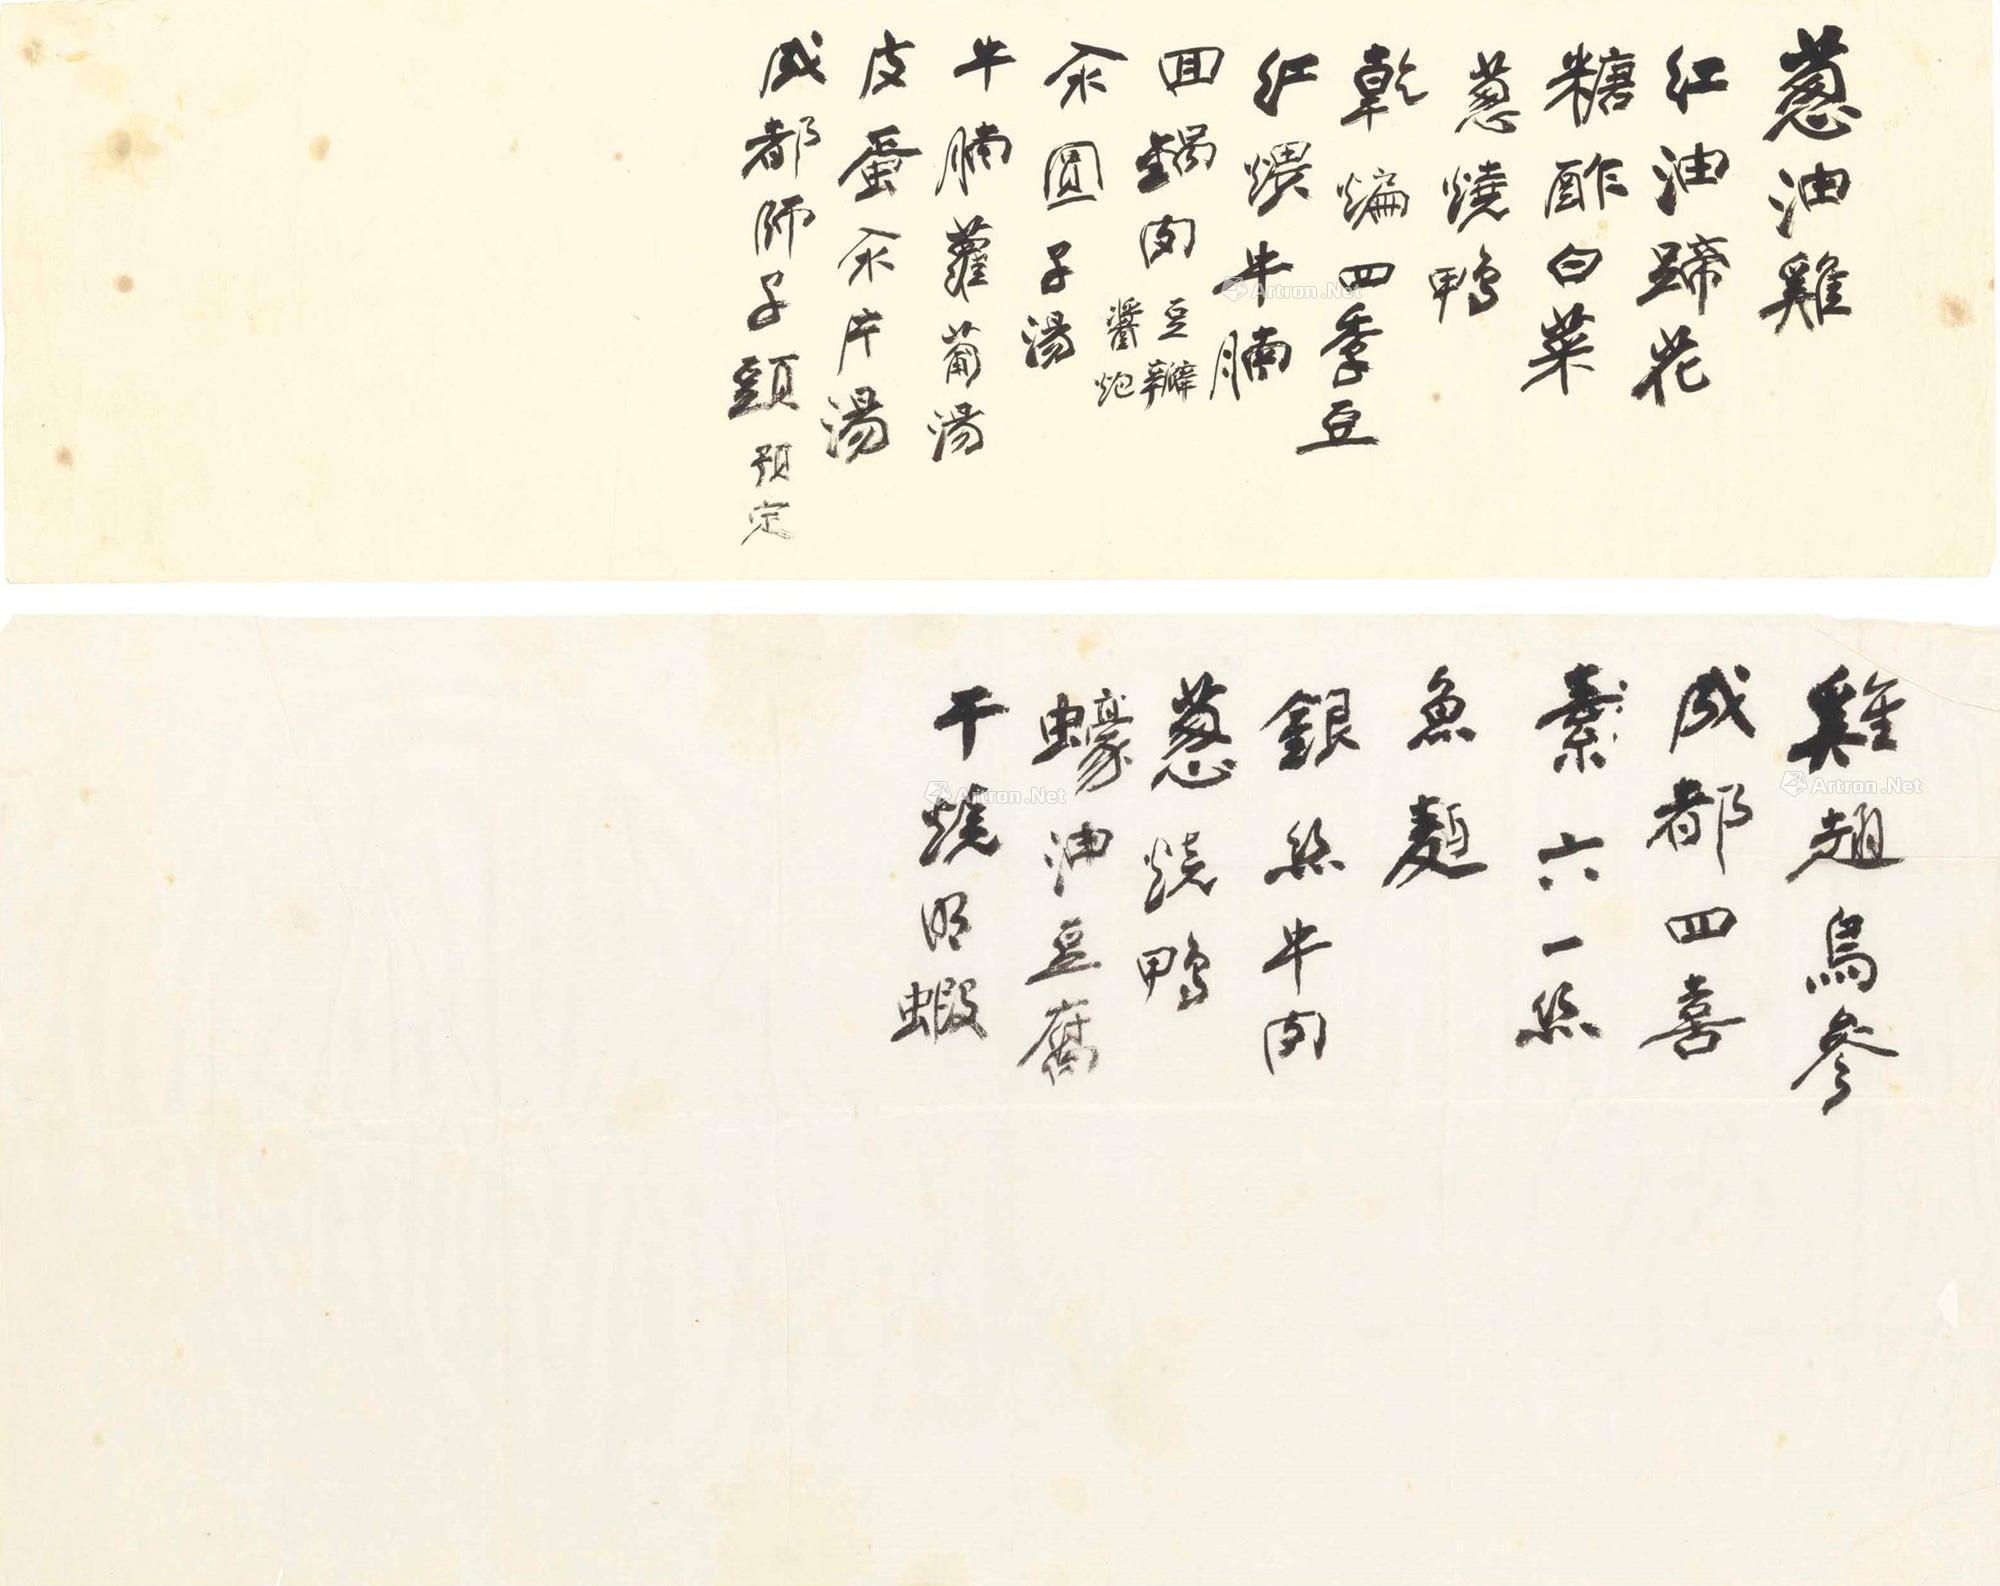 蔥油雞
紅油蹄花
糖酢白菜
蔥燒鴨
乾煸四季豆
紅煨牛腩
回鍋肉 豆瓣醬炮
汆圓子湯
牛腩蘿蔔湯
皮蛋汆片湯
成都師子頭 預定
雞趐烏參
成都四喜
素六一絲
魚麵
銀絲牛肉
蔥燒鴨
蠔油豆腐
干燒明蝦
Artron.Net
Artron.Net
Artron.Net